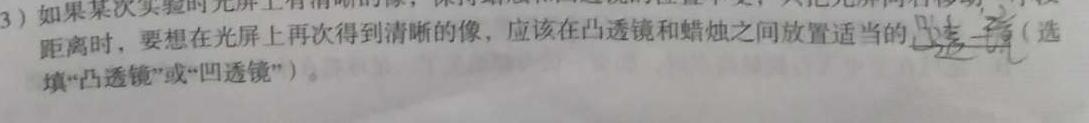 3）如果某次实验时光屏上有清晰的像，保持蜡烛和凸透镜的位置不变，只把光屏向右移动一
距离时，要想在光屏上再次得到清晰的像，应该在凸透镜和蜡烛之间放置适当的凹透镜（选
填“凸透镜”或“凹透镜”）。